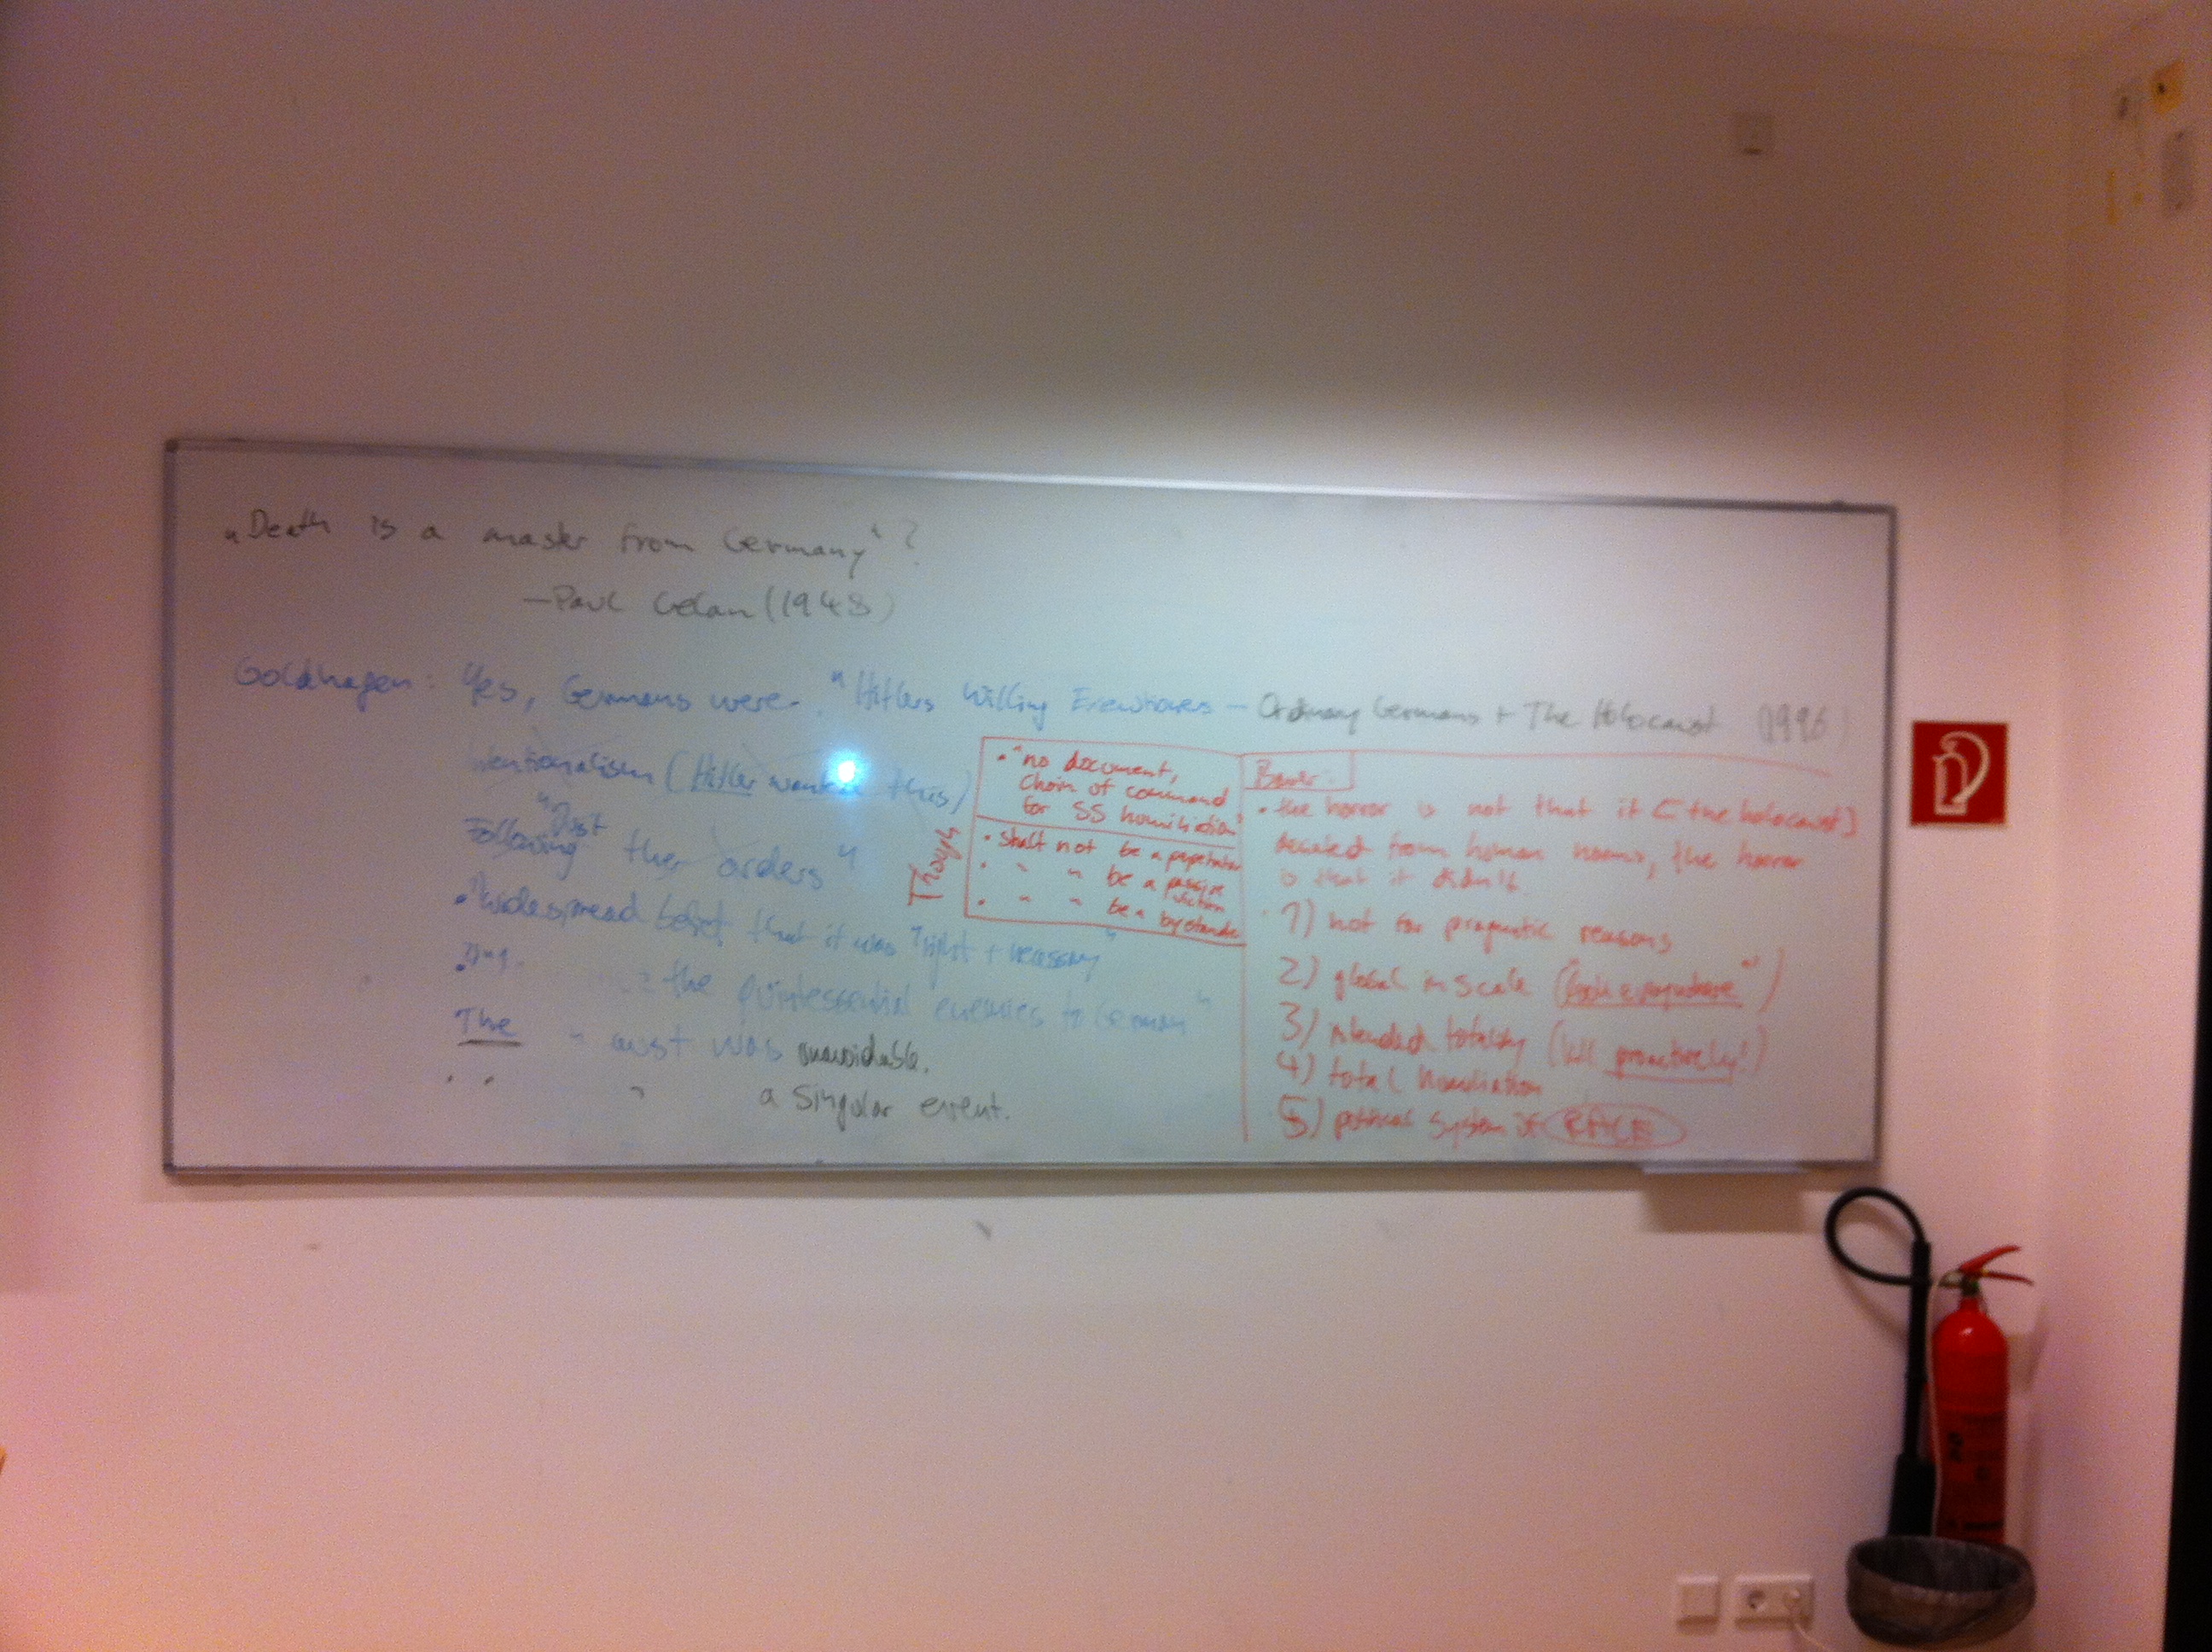 "Death is a master from Germany"?
— Paul Celan (1948)
Goldhagen: Yes, Germans were "Hitlers Willing Executioners — Ordinary Germans + The Holocaust (1996)
Intentionalism (Hitler wanted this)
"Just
Following ther orders"
• widespread belief that it was "right + necessary"
the quintessential enemies to German"
The
was unavoidable.
a singular event.
Though
• "no document,
chain of command
for SS humiliation"
• shalt not be a perpetrator
• " " be a passive
victim
• " " be a bystander
Bauer:
• the horror is not that it [the holocaust]
from human norms, the horror
is that it didn't.
1) not for pragmatic reasons
2) global in scale (look everywhere")
3) intended totality (kill proactively!)
4) total humiliation
5) political system of RACE